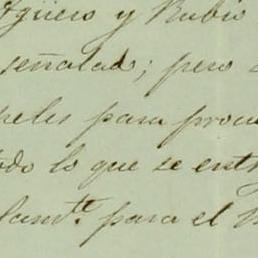 Agüero y Rubio
señalad; pero
peles para procu
do lo que se entr
lam.te para el